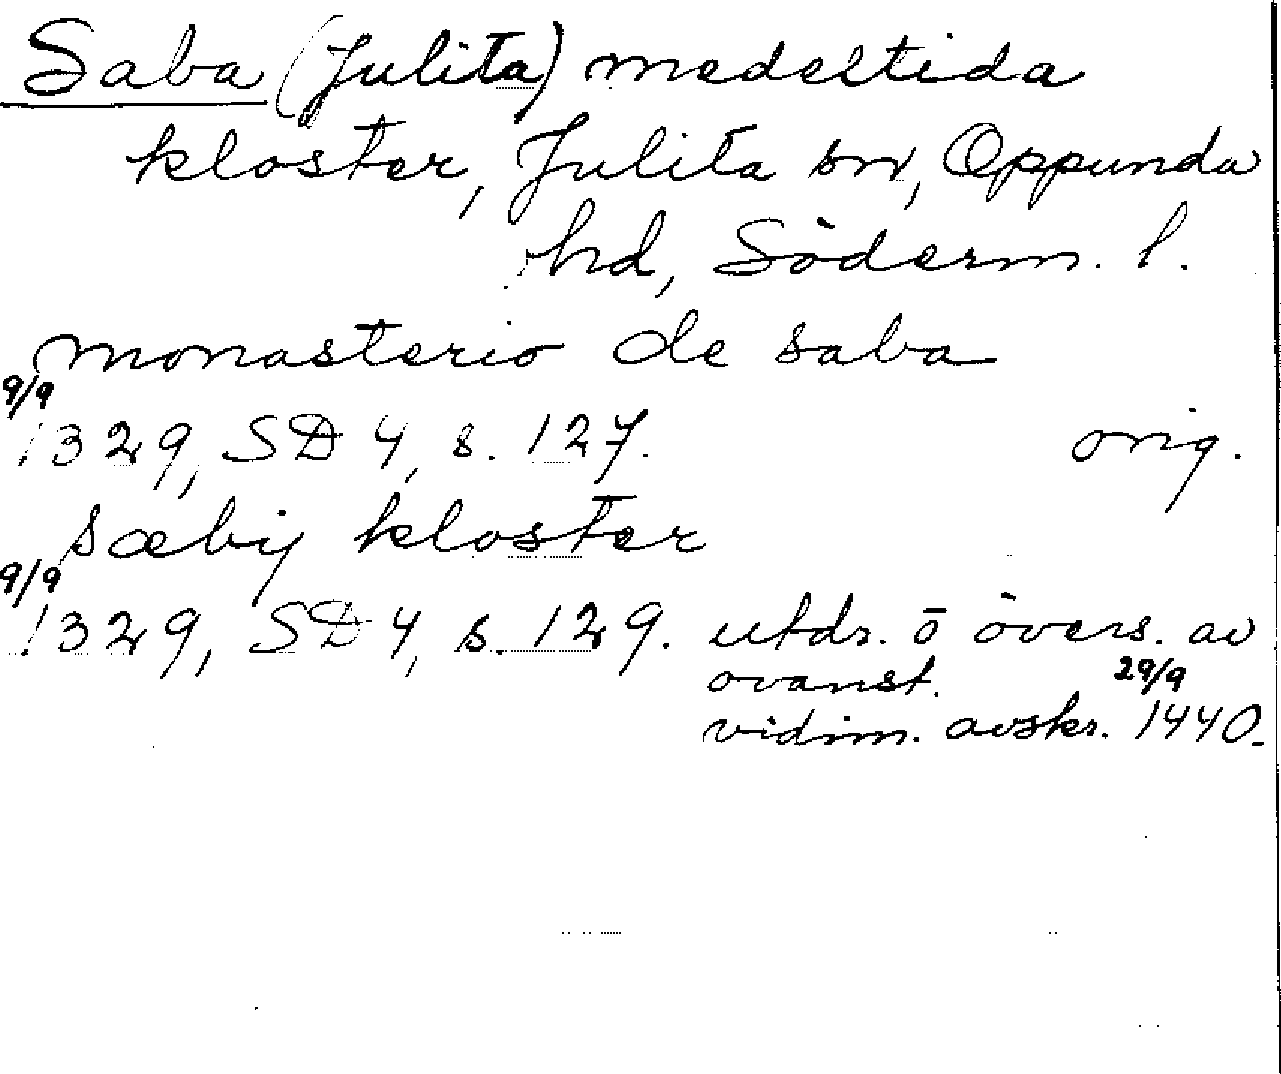 Saba (Julita) medeltida
kloster, Julita sn, Oppunda
hd, Söderm. l.
monasterio de saba
9/9
1329, SD 4, s. 127. orig.
sæby kloster
9/9
1329, SD 4, s. 129. utdr. o övers. av
ovanst. 29/9
vidim. avskr. 1440.